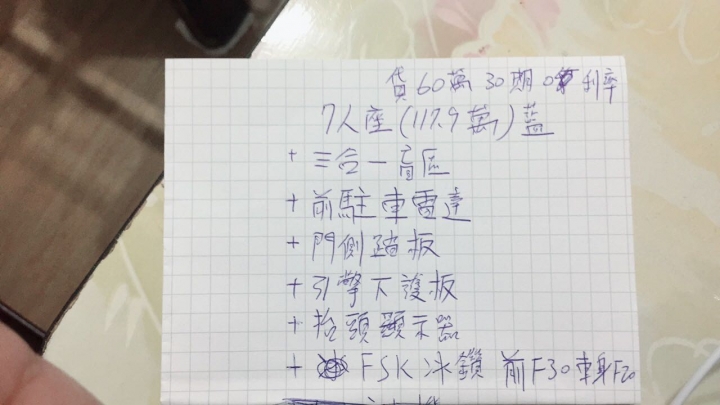 貸60萬 30期 0 利率
7人座(117.9萬)藍
+ 三合一盲區
+ 前駐車雷達
+ 門側踏板
+ 引擎下護板
+ 抬頭顯示器
+ FSK冰鑽 前F30車身F20